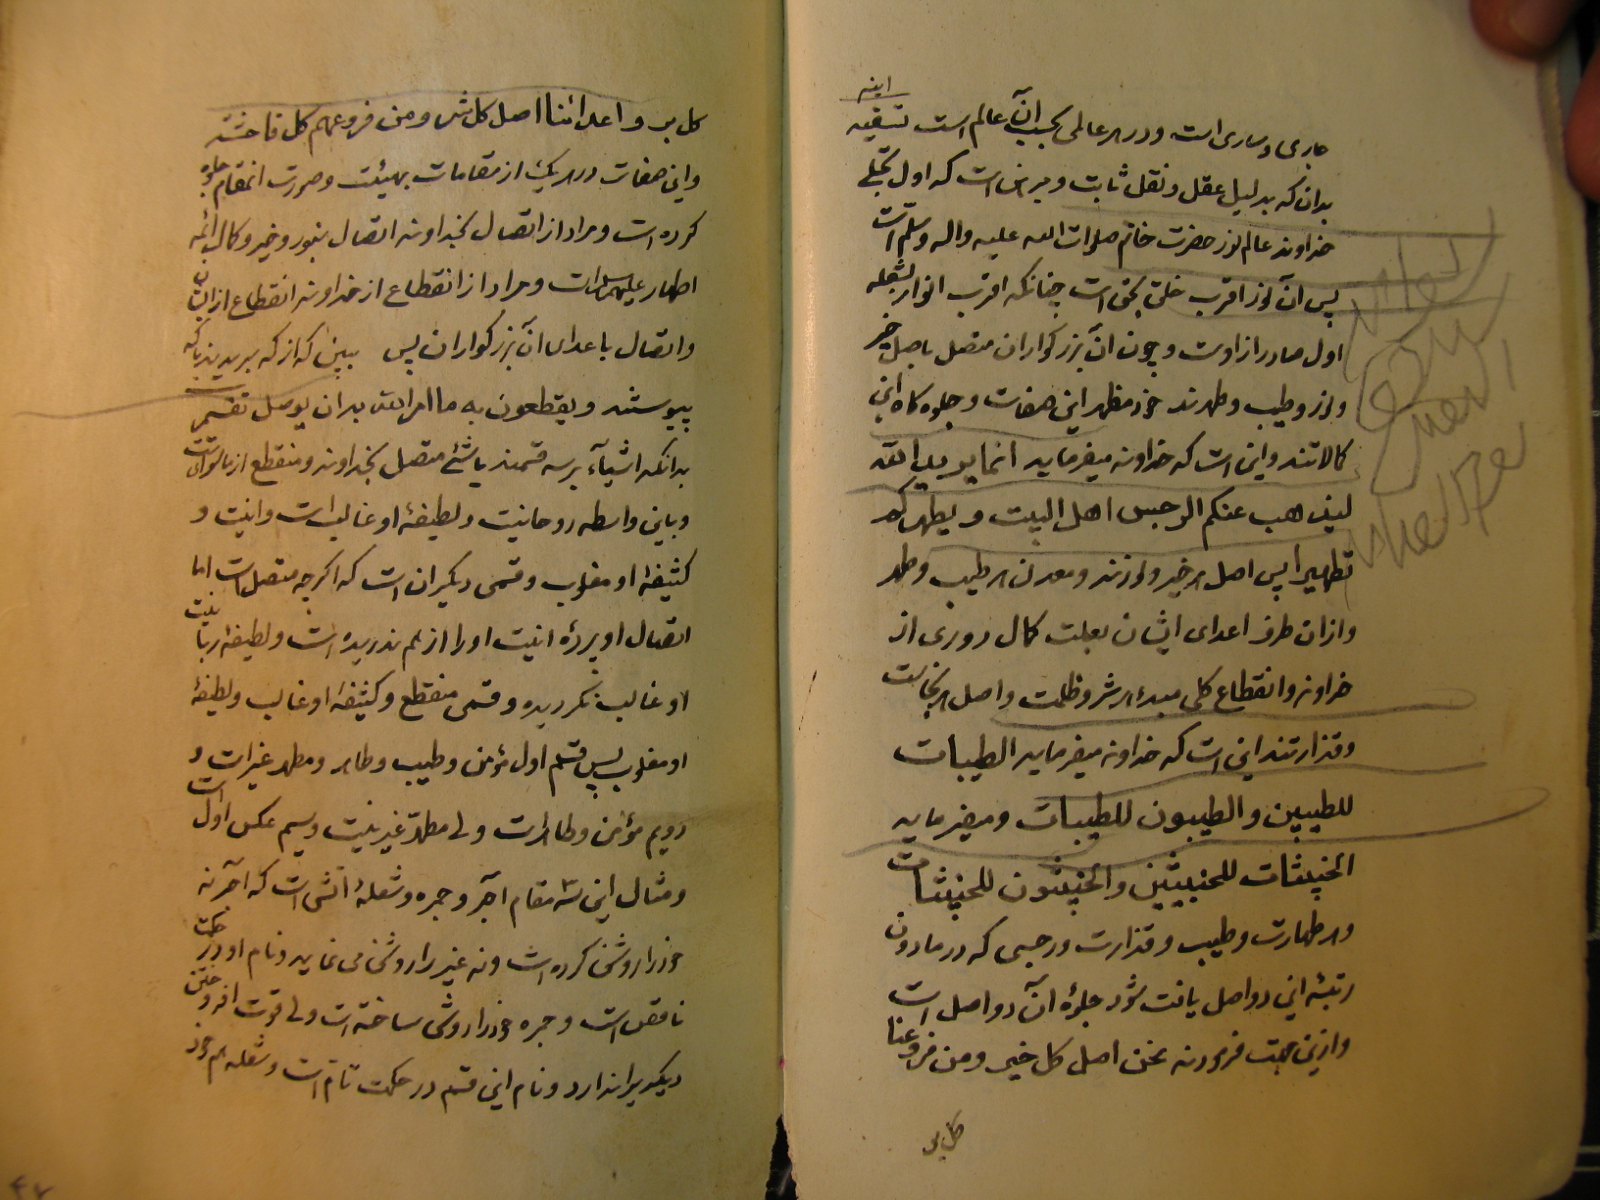 اینه
جاری و ساری است و در هر عالمی بحسب آن عالم است تنبیه
بدان که بدلیل عقل و نقل ثابت و مبرهن است که اول تجلی
خداوند عالم نور حضرت خاتم صلوات الله علیه واله وسلم است
پس آن نور اقرب خلق بحق است چنانکه اقرب انوار بشعله
اول صادر از اوست و چون آن بزرگواران متصل باصل خیر
و نور و طیب و طهرند خود مظهر این صفات و جلوه گاه این
کمالاتند و این است که خداوند میفرماید انما یرید الله
لیذهب عنکم الرجس اهل البیت و یطهرکم
تطهیرا پس اصل هر خیر و نورند و معدن هر طیب و طهر
و از آن طرف اعدای ایشان بعلت کمال دوری از
خداوند و انقطاع کلی مبدء هر شر و ظلمت و اصل هر نجاست
و قذارتند این است که خداوند میفرماید الطیبات
للطیبین والطیبون للطیبات و میفرماید
الخبیثات للخبیثین والخبیثون للخبیثات
و هر طهارت و طیب و قذارت و رجسی که در مادون
رتبه این دو اصل یافت شود جلوه آن دو اصل است
و ازین جهت فرمودند نحن اصل کل خیر ومن فروعنا
کل بر
کل بر و اعدائنا اصل کل شر ومن فروعهم کل فاحشة
و این صفات در هر یک از مقامات بهیئت و صورت انمقام جلوه
کرده است و مراد از اتصال بخداوند اتصال بنور و خیر و کمال ائمه
اطهار علیهم السلام است و مراد از انقطاع از خداوند انقطاع از ایشان
و اتصال باعدای آن بزرگواران پس ببین که از که بریدند بکه
پیوستند و یقطعون به ما امر الله بدان یوصل تقسیم
بدانکه اشیاء بر سه قسمند یا شئ متصل بخداوند و منقطع از ماسوای
و باین واسطه روحانیت و لطیفهٔ او غالب است و انیت و
کثیفهٔ او مغلوب و قسمی دیگر آن است که اگرچه متصل است اما
اتصال او پردهٔ انیت او را از هم ندریده است و لطیفهٔ ربانیت
او غالب نگردیده و قسمی منقطع و کثیفهٔ او غالب و لطیفهٔ
او مغلوب پس قسم اول مؤمن و طیب و طاهر و مطهر غیر است و
دویم مؤمن و طاهر است ولی مطهر غیر نیست و سیم عکس اول است
و مثال این سه مقام آجر و جمره و شعلهٔ آتش است که آجر نه
خود را روشن کرده است و نه غیر را روشن می نماید و نام او در حکمت
ناقص است و جمره خود را روشن ساخته است ولی قوت افروختن
دیگری را ندارد و نام این قسم در حکمت تام است و شعله هم خود
۴۷